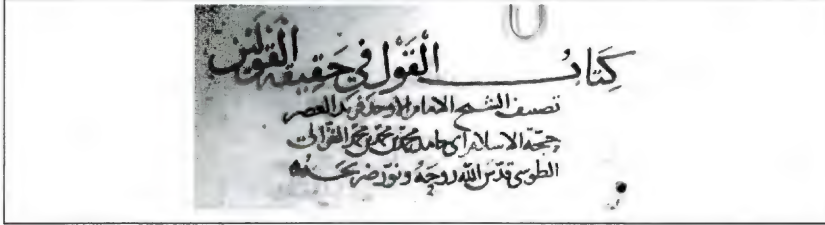 كتاب القول في حقيقة القولين
تصنيف الشيخ الامام الاوحد فريد العصر
حجة الاسلام ابي حامد محمد بن محمد بن محمد الغزالي
الطوسي قدس الله روحه ونور ضريحه